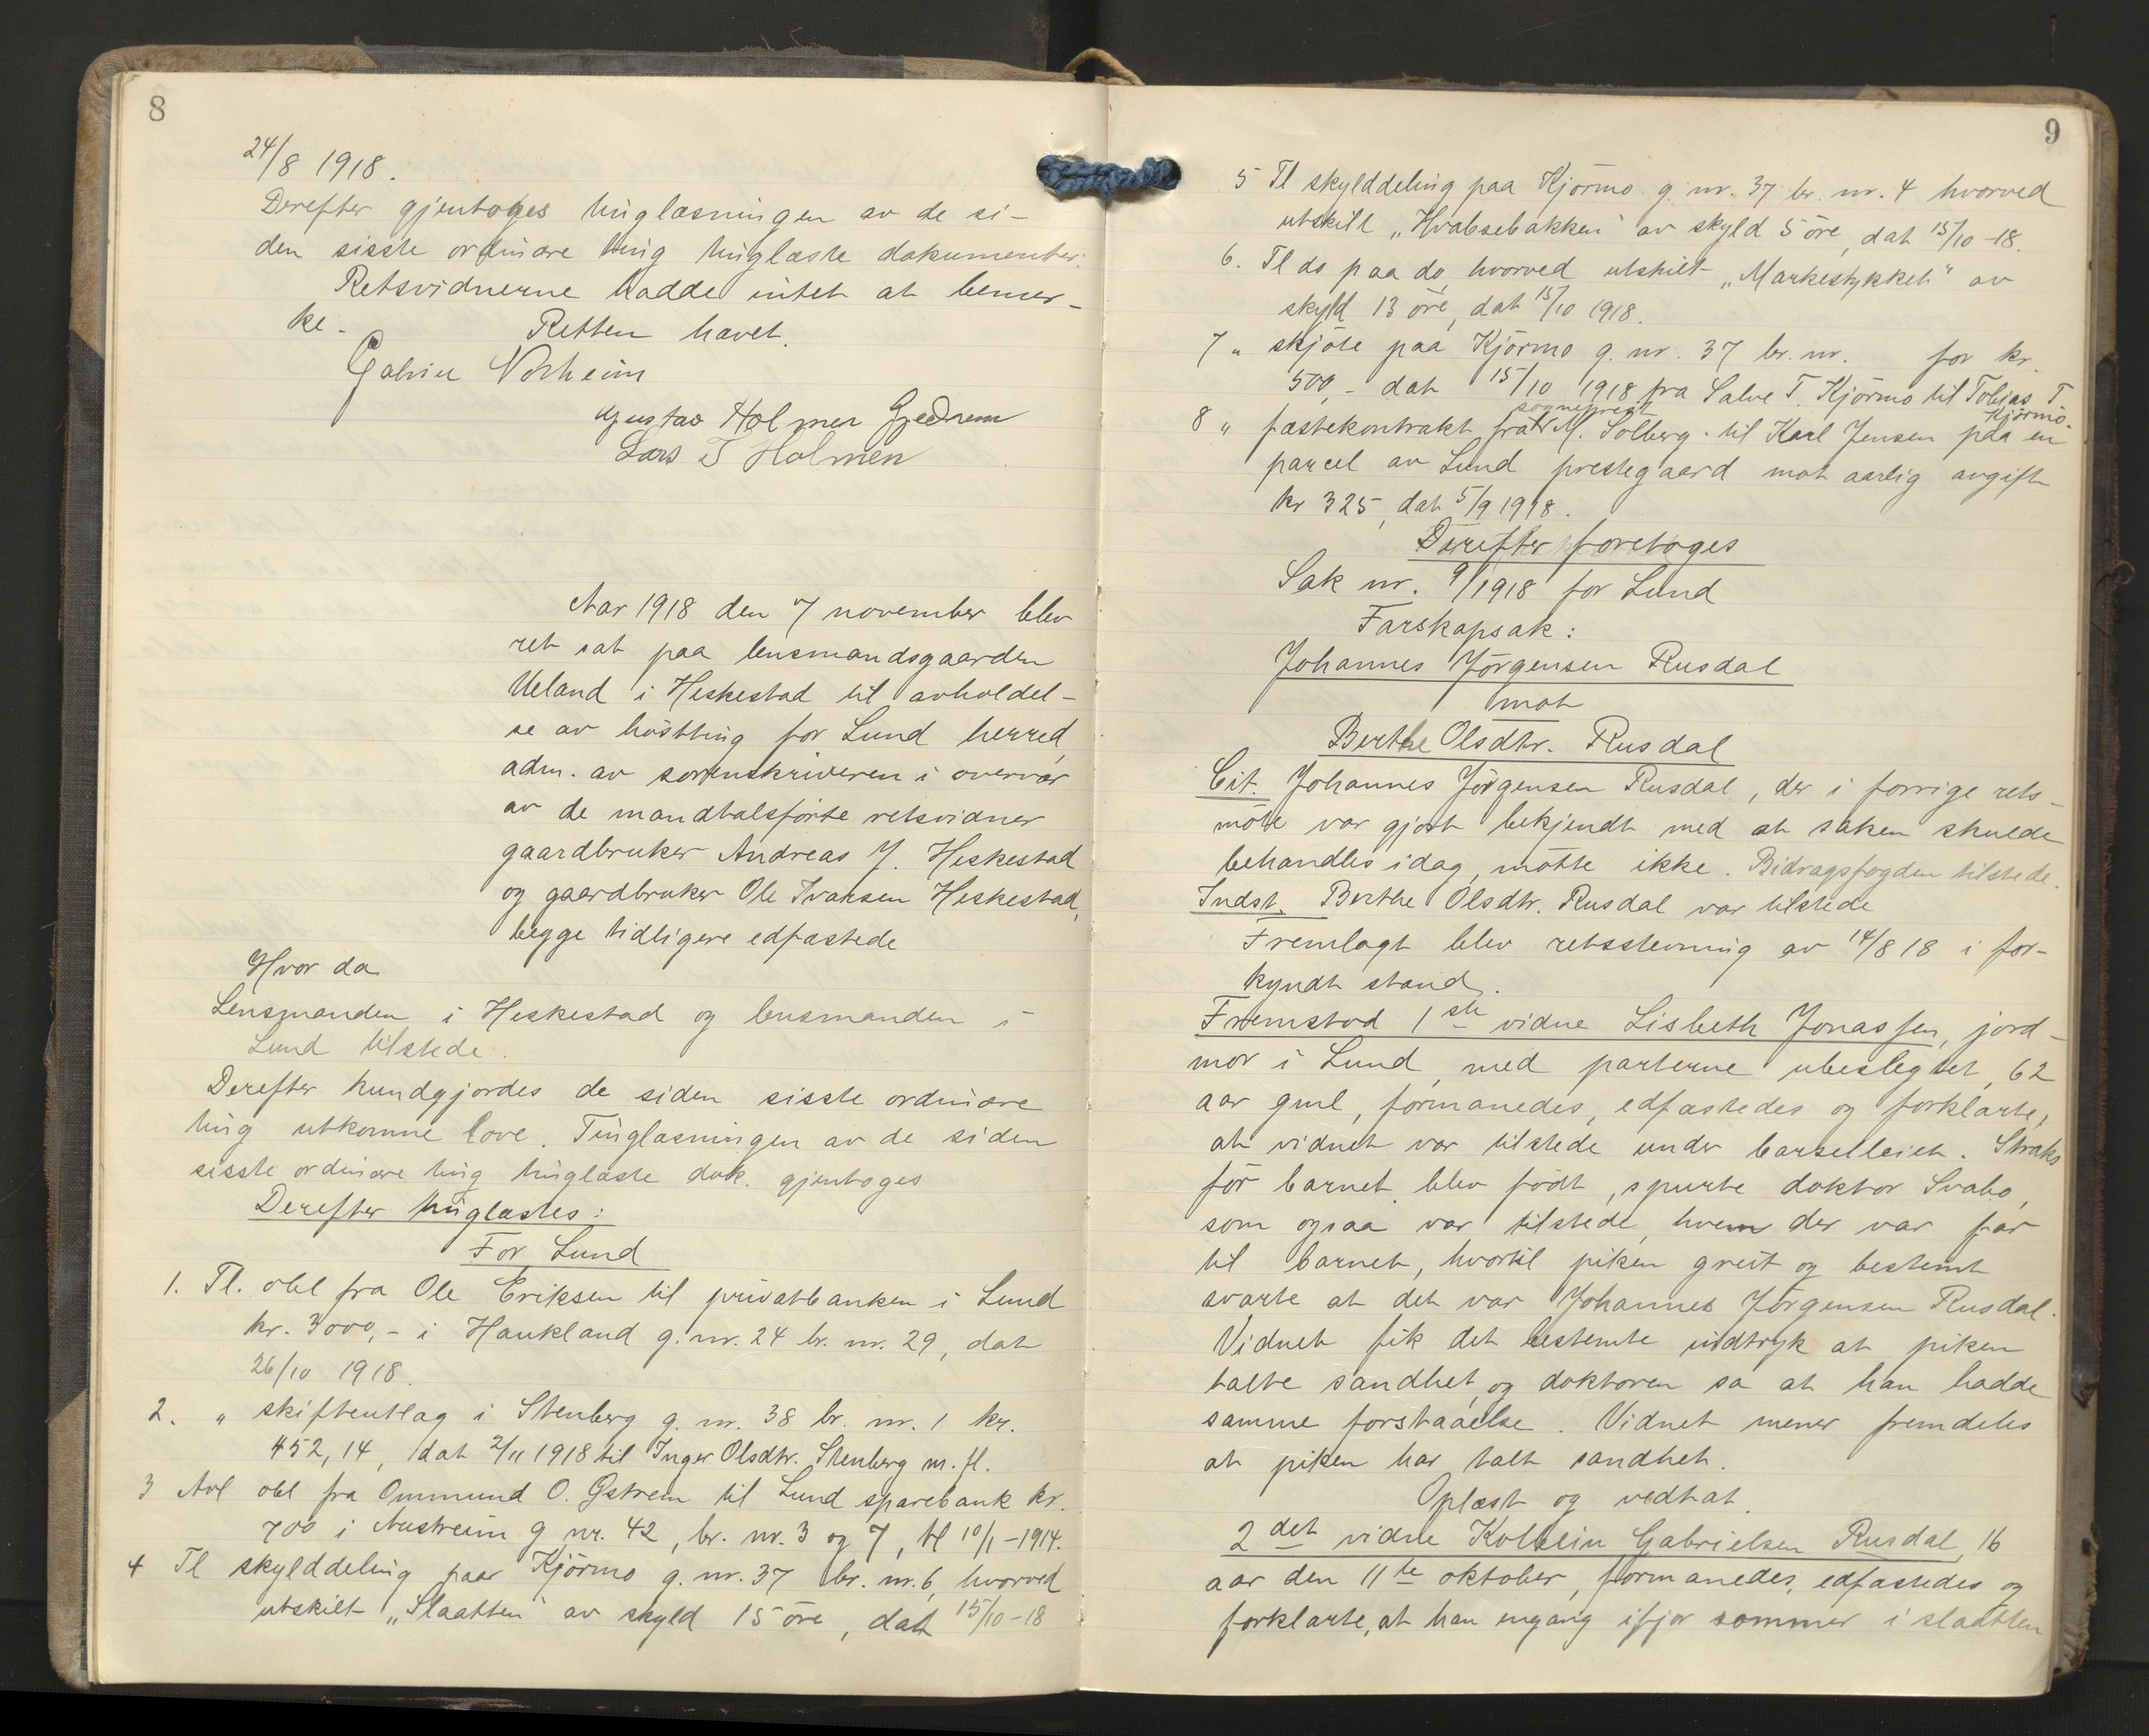 8
24/8 1918.
Derefter gjentoges tinglæsningen av de si-
den sisste ordinære ting tinglæste dokumenter.
Retsvidnerne hadde intet at bemer-
ke. Retten hævet.
Gabriel
Gustav Holmen Gjedrem
Lars T Holmen
Aar 1918 den 7 november blev
ret sat paa lensmandsgaarden
Ueland i Heskestad til avholdel-
se av høstting for Lund herred,
adm. av sorenskriveren i overvær
av de mandtalsførte retsvidner
gaardbruker Andreas J. Heskestad
og gaardbruker Ole Ivarsen Heskestad,
begge tidligere edfæstede
Hvor da
Lensmanden i Heskestad og lensmanden i
Lund tilstede.
Derefter kundgjordes de siden sisste ordinære
ting utkomne love. Tinglæsningen av de siden
sisste ordinære ting tinglæste dok. gjentoges
Derefter tinglæstes:
For Lund
1. Tl. obl fra Ole Eriksen til privatbanken i Lund
kr. 3000,- i Haukland g. nr. 24 br. nr. 29, dat
26/10 1918.
2. „ skifteutlag i Stenberg g. nr. 38 br. nr. 1 kr.
452,14, dat 2/11 1918 til Inger Olsdtr. Stenberg m. fl.
3 Avl obl fra Ommund O. Gstrein til Lund sparebank kr.
700 i Austreim g nr. 42, br. nr. 3 og 7, tl 10/1-1914.
4 Tl skylddeling paa Kjörmo g. nr. 37 br. nr. 6, hvorved
utskilt „Slaatten" av skyld 15 öre, dat 15/10-18
9
5 Tl skylddeling paa Kjörmo g. nr. 37 br. nr. 4 hvorved
utskilt „Hvabsebakken" av skyld 5 öre, dat 15/10-18.
6. Tl do paa do, hvorved utskilt „Markestykket" av
skyld 13 öre, dat 15/10 1918.
7 „ skjöte paa Kjörmo g. nr. 37 br. nr. for kr.
500,- dat 15/10 1918 fra Salve T. Kjörmo til Tobias T.
Kjörmo.
8 „ fæstekontrakt fra sogneprest M. Solberg til Karl Jensen paa en
parcel av Lund prestegaard mot aarlig avgift
kr 325, dat 5/9 1918.
Derefter foretoges
Sak nr. 9/1918 for Lund
Farskapsak:
Johannes Jörgensen Rusdal
mot
Berthe Olsdtr. Rusdal
Cit. Johannes Jörgensen Rusdal, der i forrige rets-
möte var gjort bekjendt med at saken skulde
behandles idag, mötte ikke. Bidragsfogden tilstede.
Indst. Berthe Olsdtr. Rusdal var tilstede
Fremlagt blev retsstevning av 14/8 18 i for-
kyndt stand.
Fremstod 1ste vidne Lisbeth Jonassen, jord-
mor i Lund, med parterne ubeslegtet, 62
aar gml, formanedes, edfæstedes og forklarte,
at vidnet var tilstede under barselleiet. Straks
för barnet blev födt, spurte doktor Svabo,
som ogsaa var tilstede, hvem der var far
til barnet, hvortil piken greit og bestemt
svarte at det var Johannes Jörgensen Rusdal.
Vidnet fik det bestemte indtryk at piken
talte sandhet, og doktoren sa at han hadde
samme forstaaelse. Vidnet mener fremdeles
at piken har talt sandhet.
Oplæst og vedtat.
2det vidne Kolbein Gabrielsen Rusdal, 16
aar den 11te oktober, formanedes, edfæstedes og
forklarte, at han engang ifjor sommer i slaatten